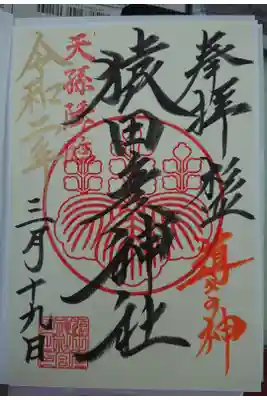 奉拝
導きの神
猿田彦神社
天孫降臨
令和二年
三月十九日